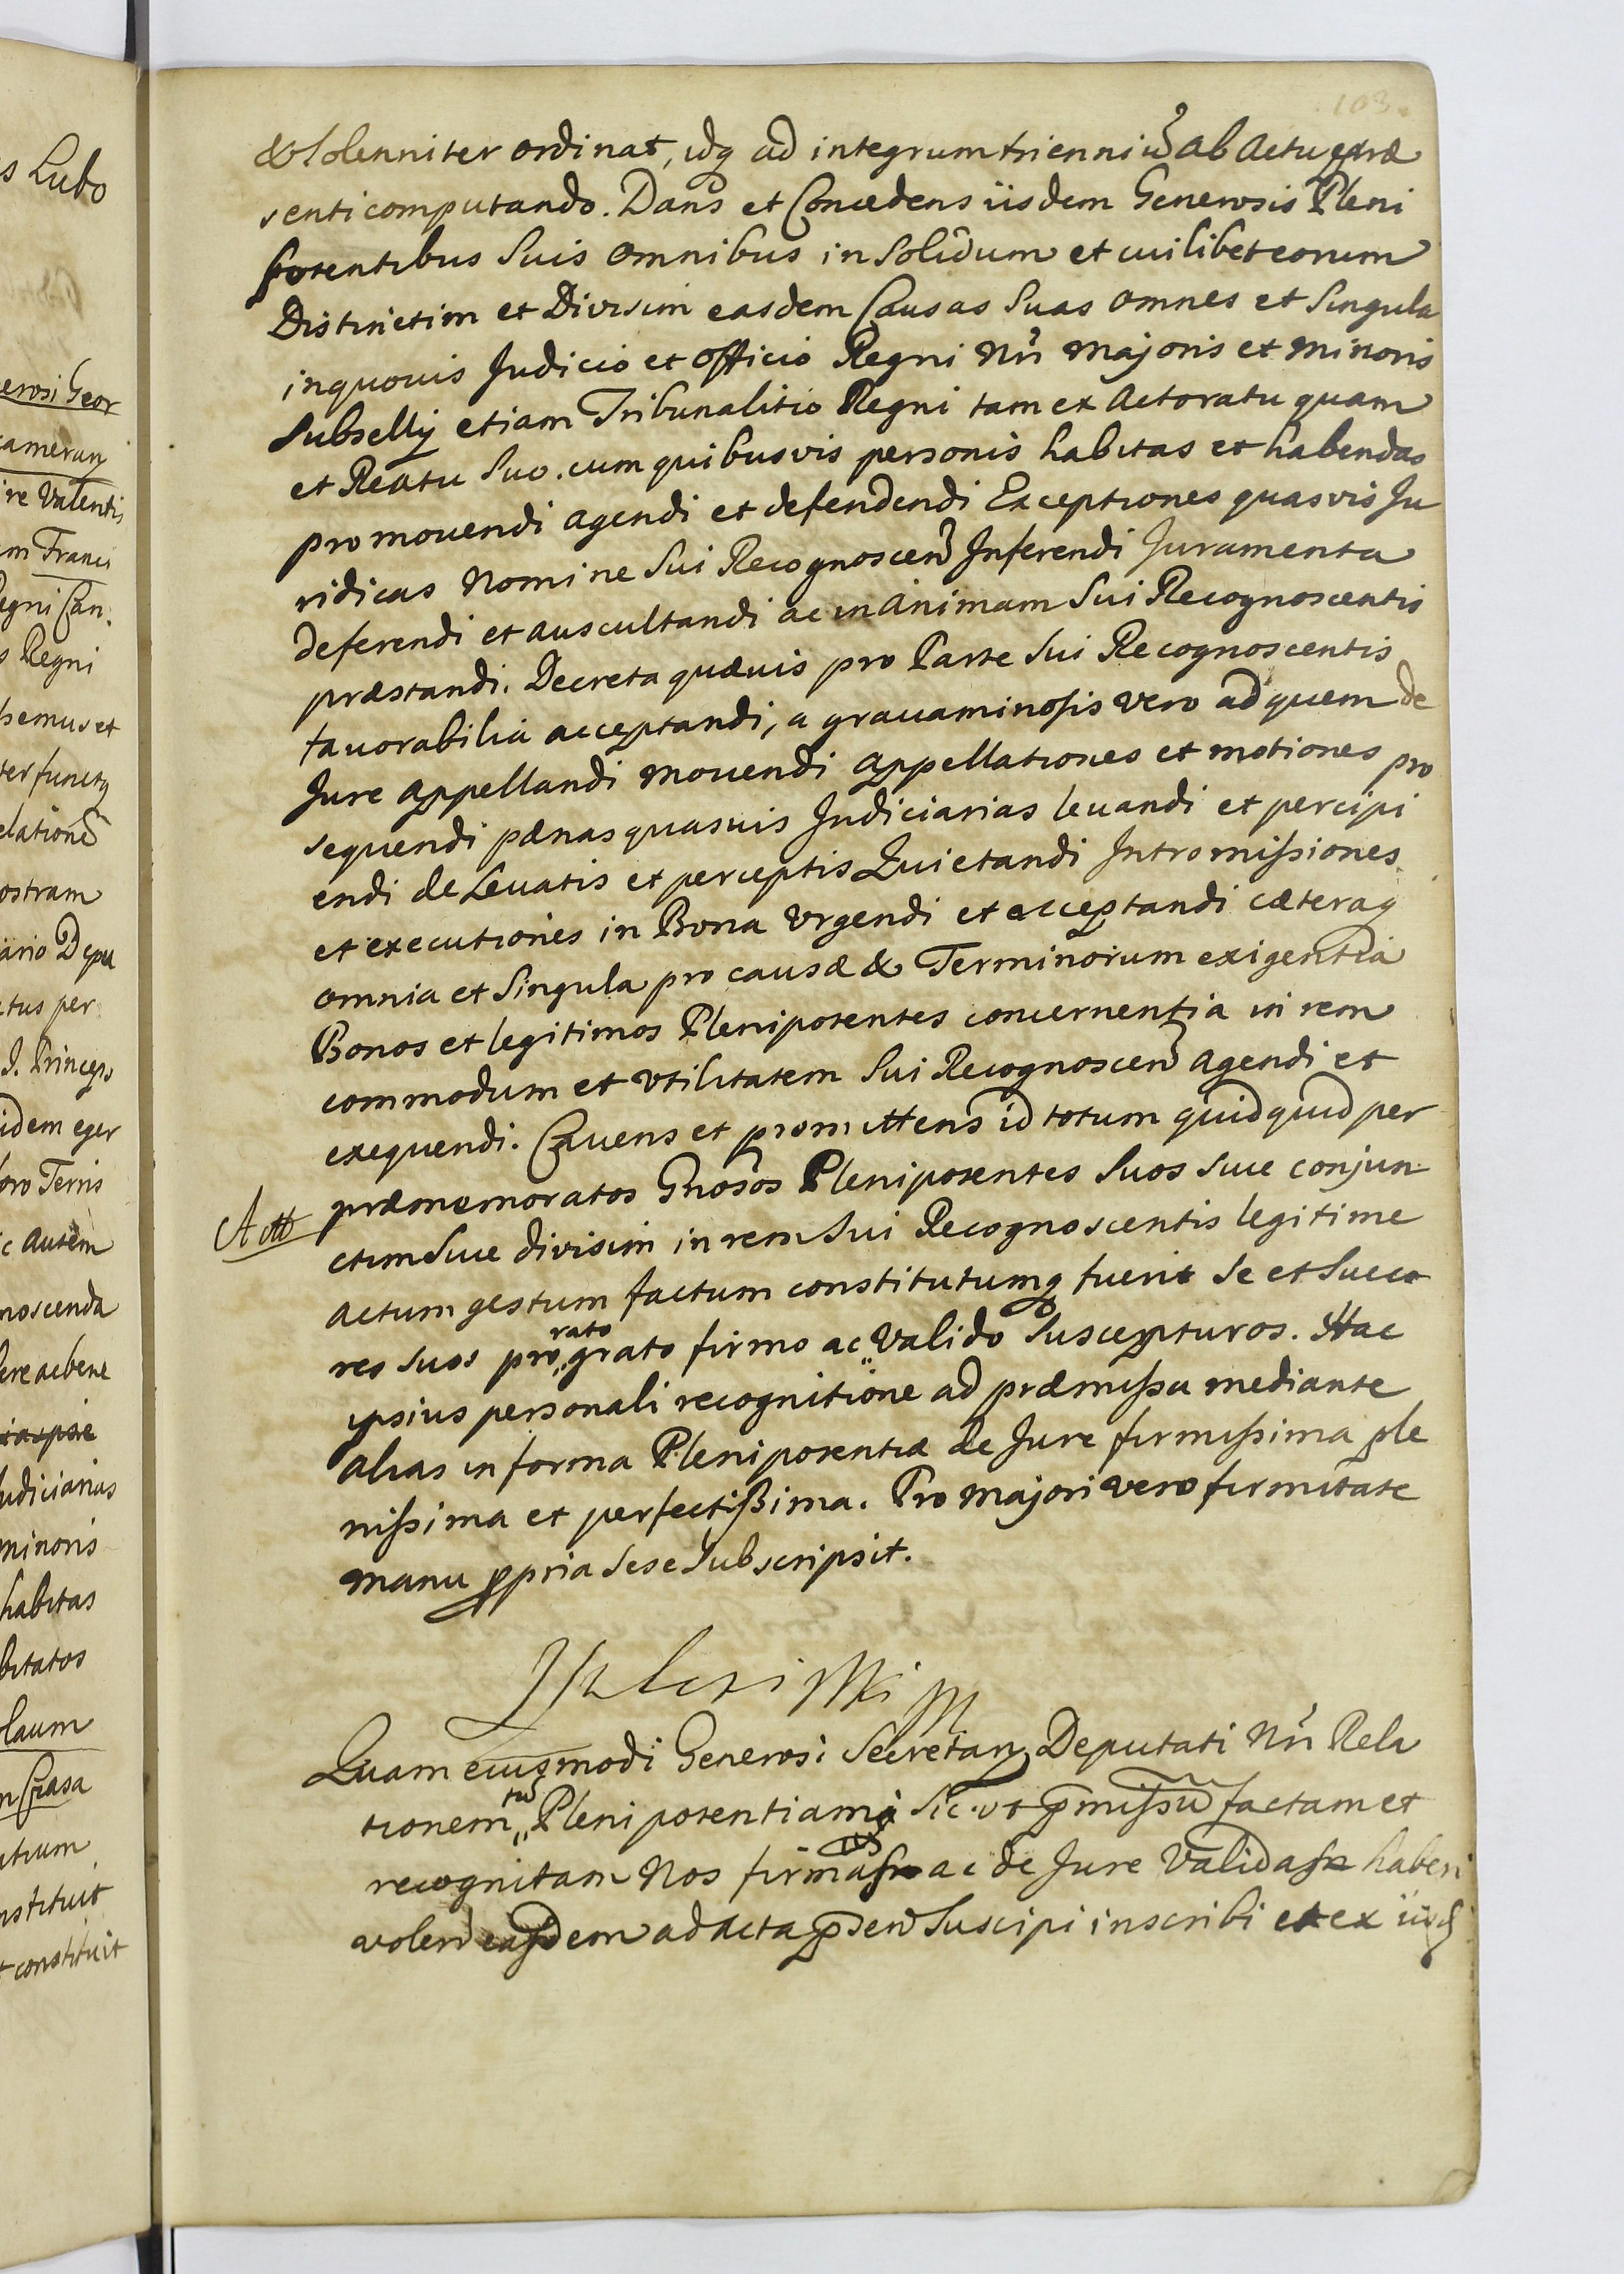 103.
& Solenniter ordinat, idq ad integrum trienniũ ab Actu præ
senti computando. Dans et Concedens iisdem Generosis Pleni
potentibus Suis omnibus in Solidum et cuilibet eorum
Distinctim et Divisim easdem Causas Suas omnes et Singula
in quouis Judicio et Officio Regni Nri Majoris et Minoris
Subsellij etiam Tribunalitio Regni tam ex Actoratu quam
et Reatu Suo. cum quibusvis personis habitas et habendas
promouendi agendi et defendendi Exceptiones quasvis Ju
ridicas Nomine Sui Recognoscen Inferendi Juramenta
deferendi et auscultandi ac in animam Sui Recognoscentis
præstandi. Decreta quævis pro Parte Sui Recognoscentis
fauorabilia acceptandi, a grauaminosis vero ad quem de
Jure appellandi mouendi appellationes et motiones pro
sequendi pænas quasuis Judiciarias leuandi et percipi
endi de Leuatis et perceptis Quietandi Intromissiones
et executiones in Bona Vrgendi et acceptandi cæteraq
omnia et Singula pro causæ & Terminorum exigentia
Bonos et legitimos Plenipotentes concernentia in rem
commodum et vtilitatem Sui Recognoscen agendi et
exequendi. Cauens et promittens id totum quidquid per
præmemoratos Gnosos Plenipotentes Suos Siue conjun
ctim Siue divisim in rem Sui Recognoscentis legitime
actum gestum factum constitutumq fuerit Se et Succo
res suos pro rato grato firmo ac Valido Suscepturos. Hac
ipsius personali recognitione ad præmissa mediante
alias in forma Plenipotentiæ de Jure firmissima ple
nissima et perfectissima. Pro majori vero firmitate
manu ppria Sese Subscripsit.
Quam eiusmodi Generosi Secretarij Deputati Nri Rela
tionem tũ Plenipotentiamq Sic vt pmissũ factam et
recognitam Nos firmas ac de Jure Validas haberi
volen easdem ad acta psen Suscipi inscribi et ex iisd